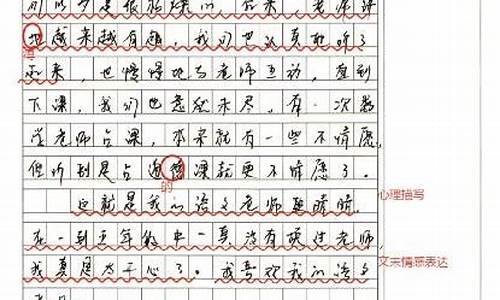 可以少是很枯燥的,后来,老师讲
地越来越有趣,我们也认真地听了
得
起来,也慢慢地与老师互动,直到
下课,我们也意犹未尽,有一次数
学老师占课,本来就有一些不情愿,
但听到是占道的课就更不情愿了。
的
心理描写
这就是我的语文老师熊晴晴,
在一到五年级中一直没有换过老师,
文末情感表达
我真是太开心了。我喜欢我的语文